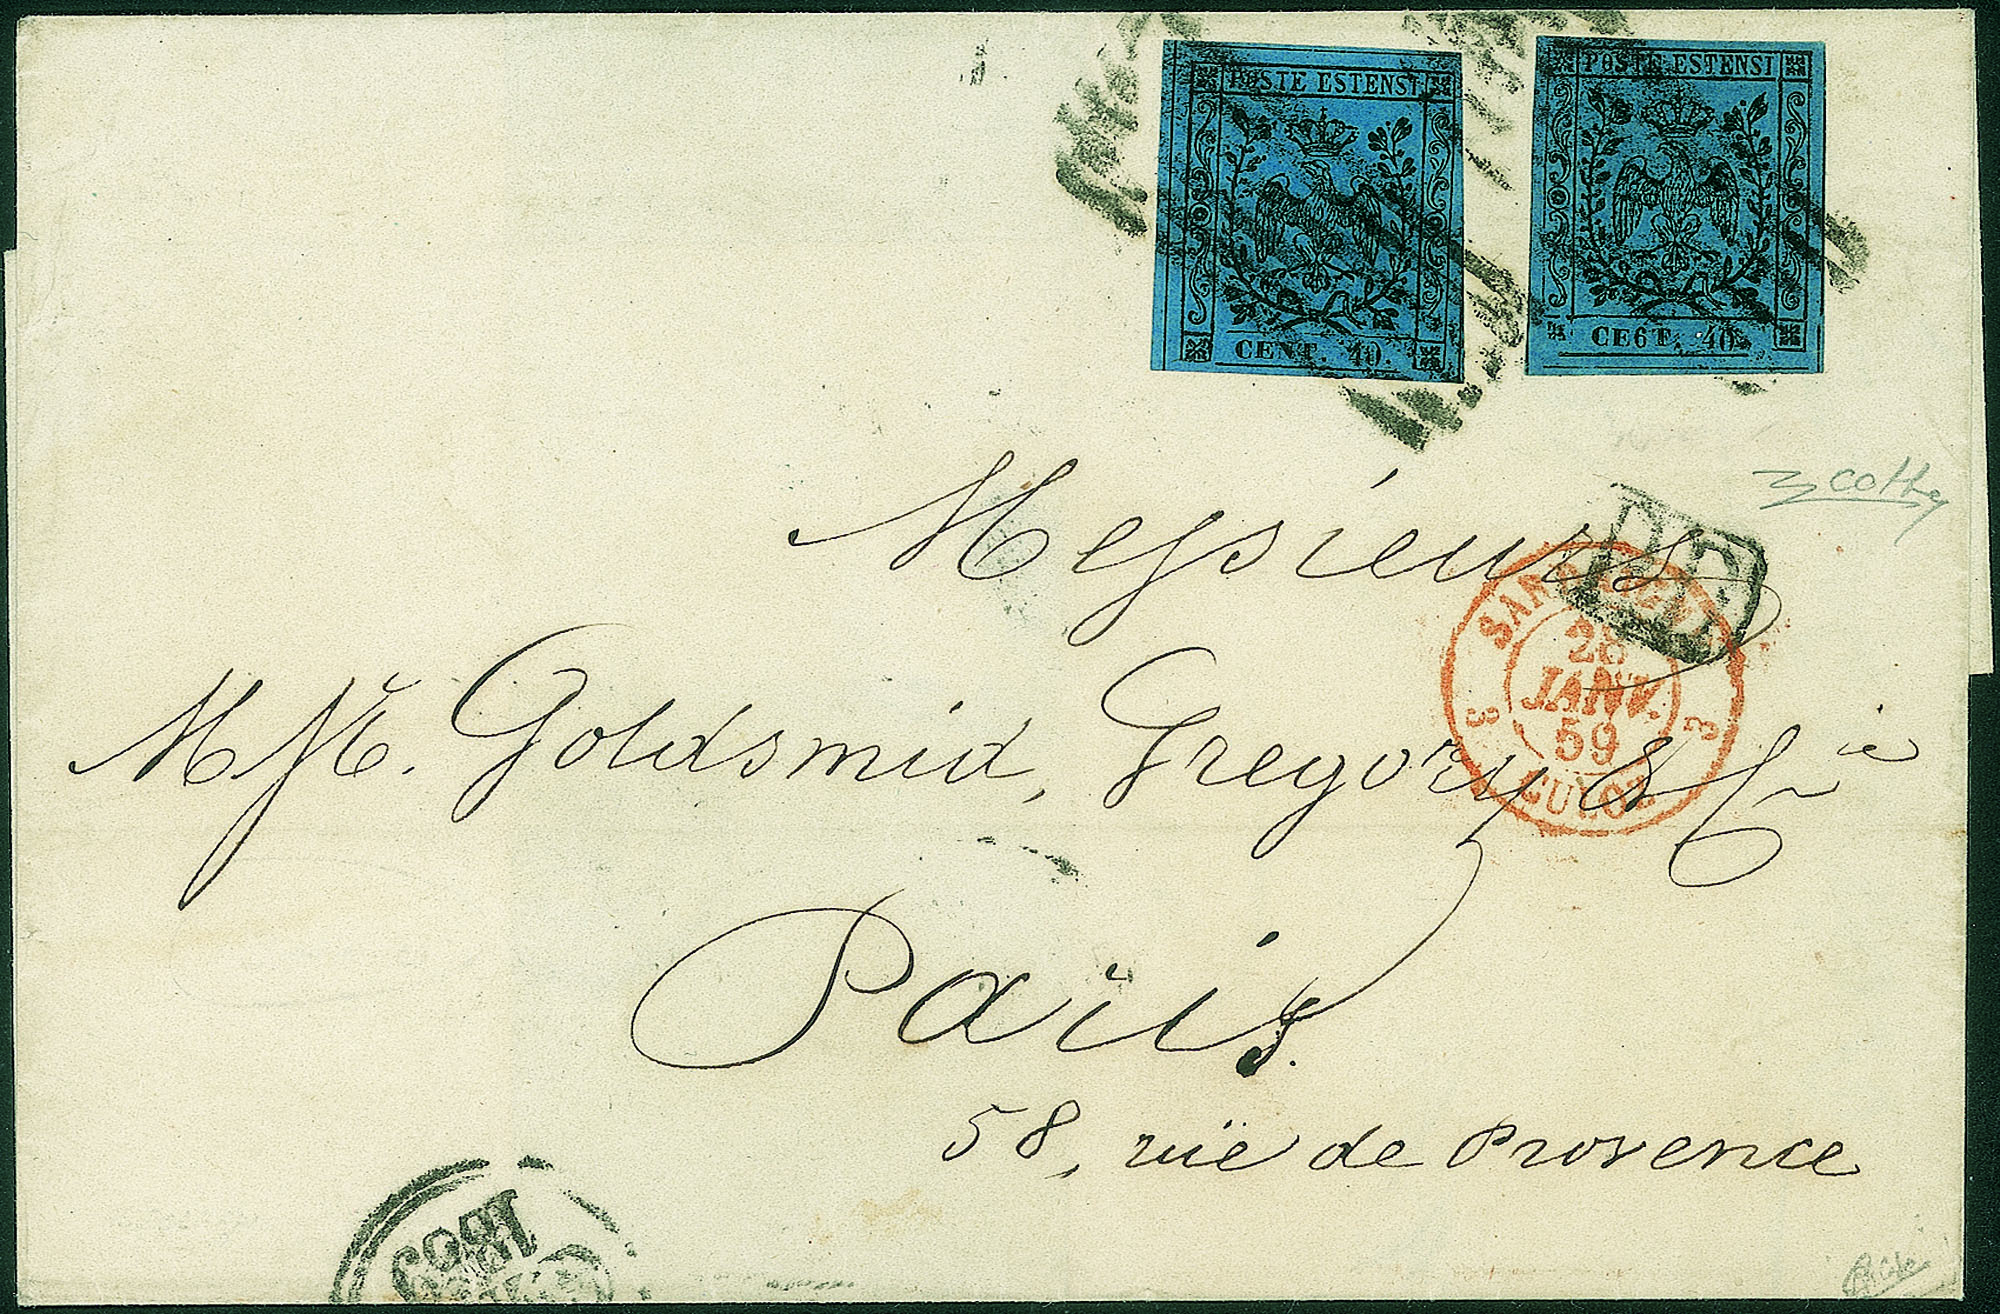 POSTE ESTENSI
CENT. 40.
POSTE ESTENSI
CE6T. 40.
Messieurs
P.D.
28
JANV.
59
3 3
CULOZ
MM. Goldsmid, Gregory & Cie
Paris.
58, rüe de Provence